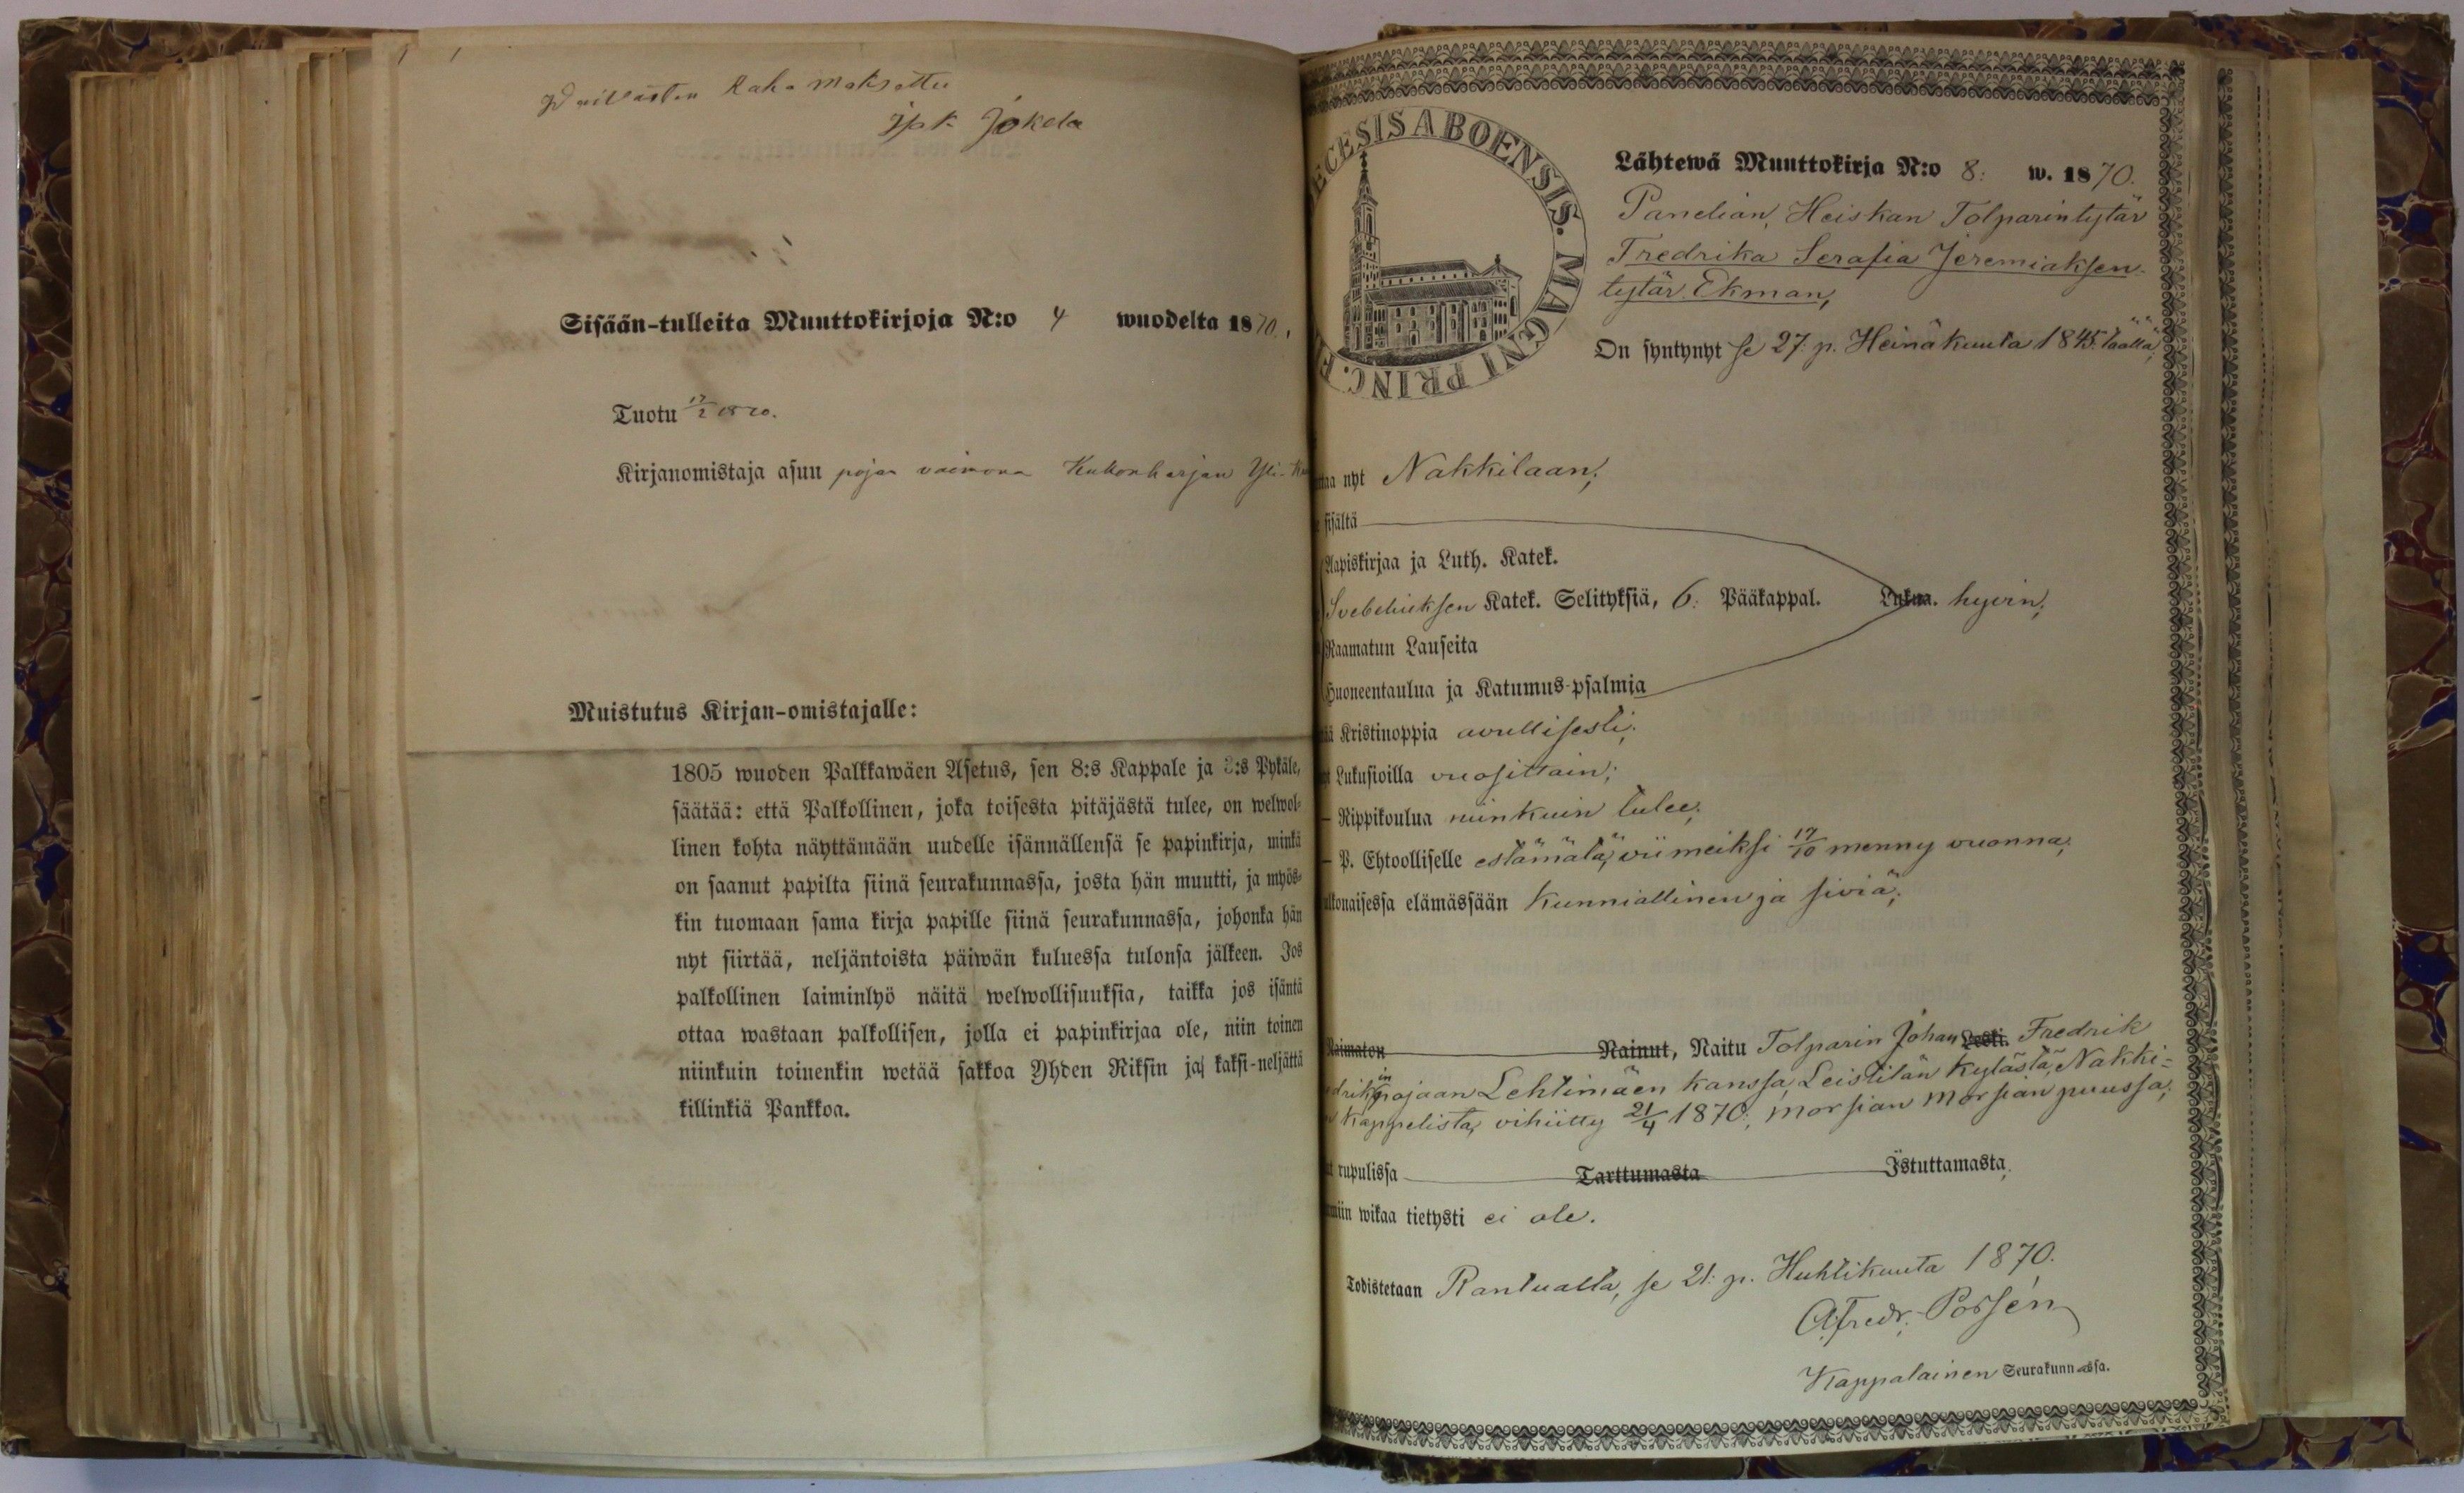 Waivaisten Raha Maksettu
Jok. Jokela
Sisään-tulleita Muuttokirjoja N:o 4 wuodelta 1870.,
Tuotu 17/2 1870.
Kirjanomistaja asuu pojan vaimona Kukonharjan Yli-
Muistutus Kirjan-omistajalle:
1805 wuoden Palkkawäen Asetus, sen 8:s Kappale ja 3:s Pykäle,
säätää: että Palkollinen, joka toisesta pitäjästä tulee, on welwol-
linen kohta näyttämään uudelle isännällensä se papinkirja, minkä
on saanut papilta siinä seurakunnassa, josta hän muutti, ja myös-
kin tuomaan sama kirja papille siinä seurakunnassa, johonka hän
nyt siirtää, neljäntoista päiwän kuluessa tulonsa jälkeen. Jos
palkollinen laiminlyö näitä welwollisuuksia, taikka jos isäntä
ottaa wastaan palkollisen, jolla ei papinkirjaa ole, niin toinen
niinkuin toinenkin wetää sakkoa Yhden Riksin ja kaksi-neljättä
killinkiä Pankkoa.
ECESIS ABOENSIS. MAGNI PRINC. F
Lähtewä Muuttokirja N:o 8: w. 1870.
Panelian, Heiskan Tolparintytär
Fredrika Serafia Jeremiaksen-
tytär Ekman,
On syntynyt se 27. p. Heinäkuuta 1845. täällä;
taa nyt Nakkilaan;
sisältä
Aapiskirjaa ja Luth. Katek.
Svebeliuksen Katek. Selityksiä, 6: Pääkappal. Lukua. hyvin;
Raamatun Lauseita
Huoneentaulua ja Katumus-psalmia
ää Kristinoppia avullisesti;
Lukusioilla vuosittain;
— Rippikoulua niinkuin tulee;
— P. Ehtoolliselle estämätä, viimeiksi 17/10 menny vuonna;
ulkonaisessa elämässään Kunniallinen ja siviä;
Naimaton Nainut, Naitu Tolparin Johan Leski. Fredrik
drikinpojaan Lehtimäen kanssa, Leistilän Kylästä, Nakki=
n Kappelista, vihitty 21/4 1870; morsian morsian puussa;
ut rupulissa Tarttumasta Istuttamasta,
miin wikaa tietysti ei ole.
Todistetaan Rantualla, se 21: p. Huhtikuuta 1870.
A. Fredr. Porsén
Kappalainen Seurakunnassa.